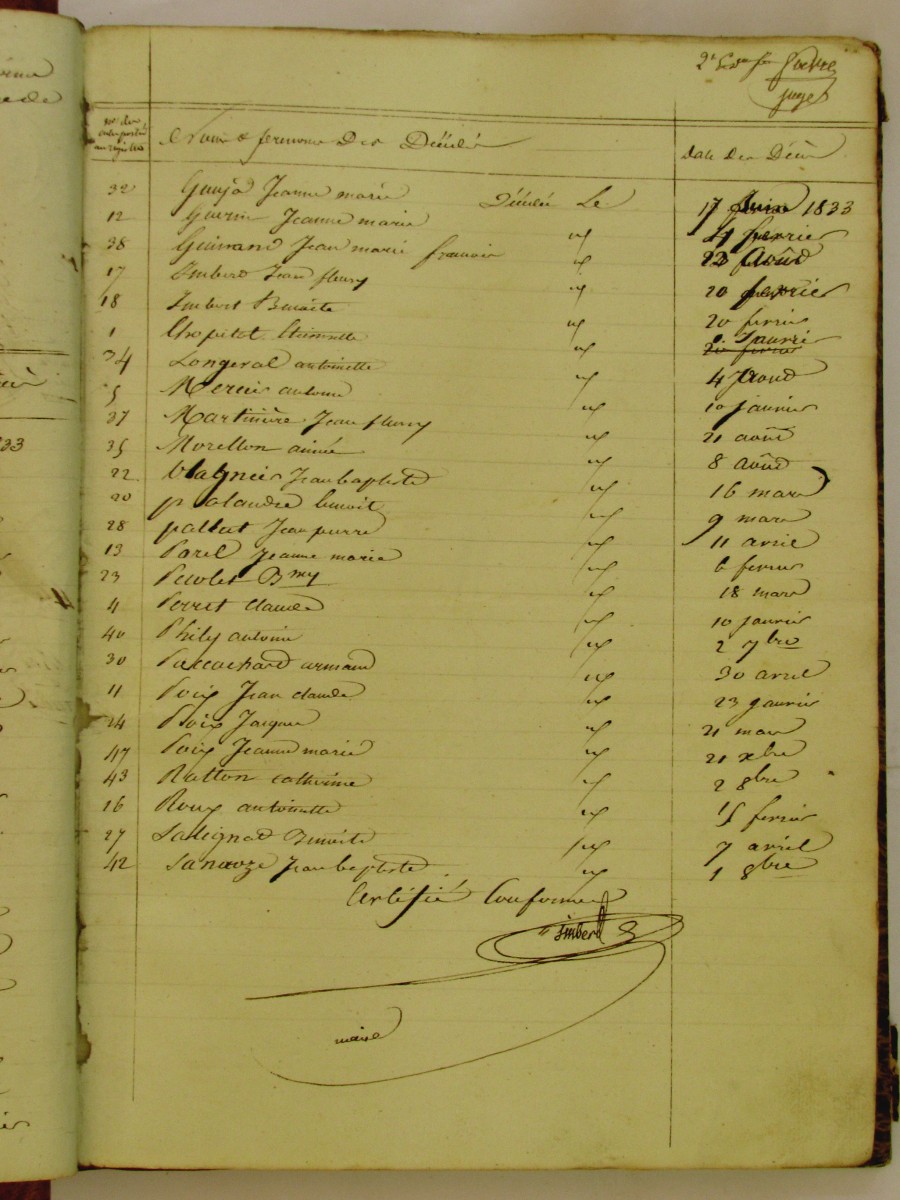 2e
juge
Nos des
actes portés
au registre
Noms et prenoms Des Décédés
Date Des Décès
32 Jeanne marie Décédée Le 17 Juin 1833
12 Guerin Jeanne marie id 4 fevrier
38 Guinand Jean marie francois id 22 Août
17 Imbert Jean fleury id 20 fevrier
18 Imbert Benoite id 20 fevrier
1 Etiennette id 1 Janvier
34 Longeral antoinette id 4 Aout
5 Mercier antoine id 10 janvier
37 Martinière Jean fleury id 21 août
35 Morellon aimée id 8 août
22 Jean baptiste id 16 mars
20 benoit id 9 mars
28 pallut Jean pierre id 11 avril
13 Parel Jeanne marie id 6 fevrier
23 Bmy id 18 mars
4 Perret claude id 10 janvier
40 Phily antoine id 2 7bre
30 armand id 30 avril
11 Poix Jean claude id 23 janvier
24 Poix Jacques id 21 mars
47 Poix Jeanne marie id 21 xbre
43 Ratton catherine id 2 8bre
16 Roux antoinette id 15 fevrier
27 Salignat Benoite id 7 avril
42 Sanaoze Jean baptiste id 1 8bre
Certifié Conforme
imbert
maire